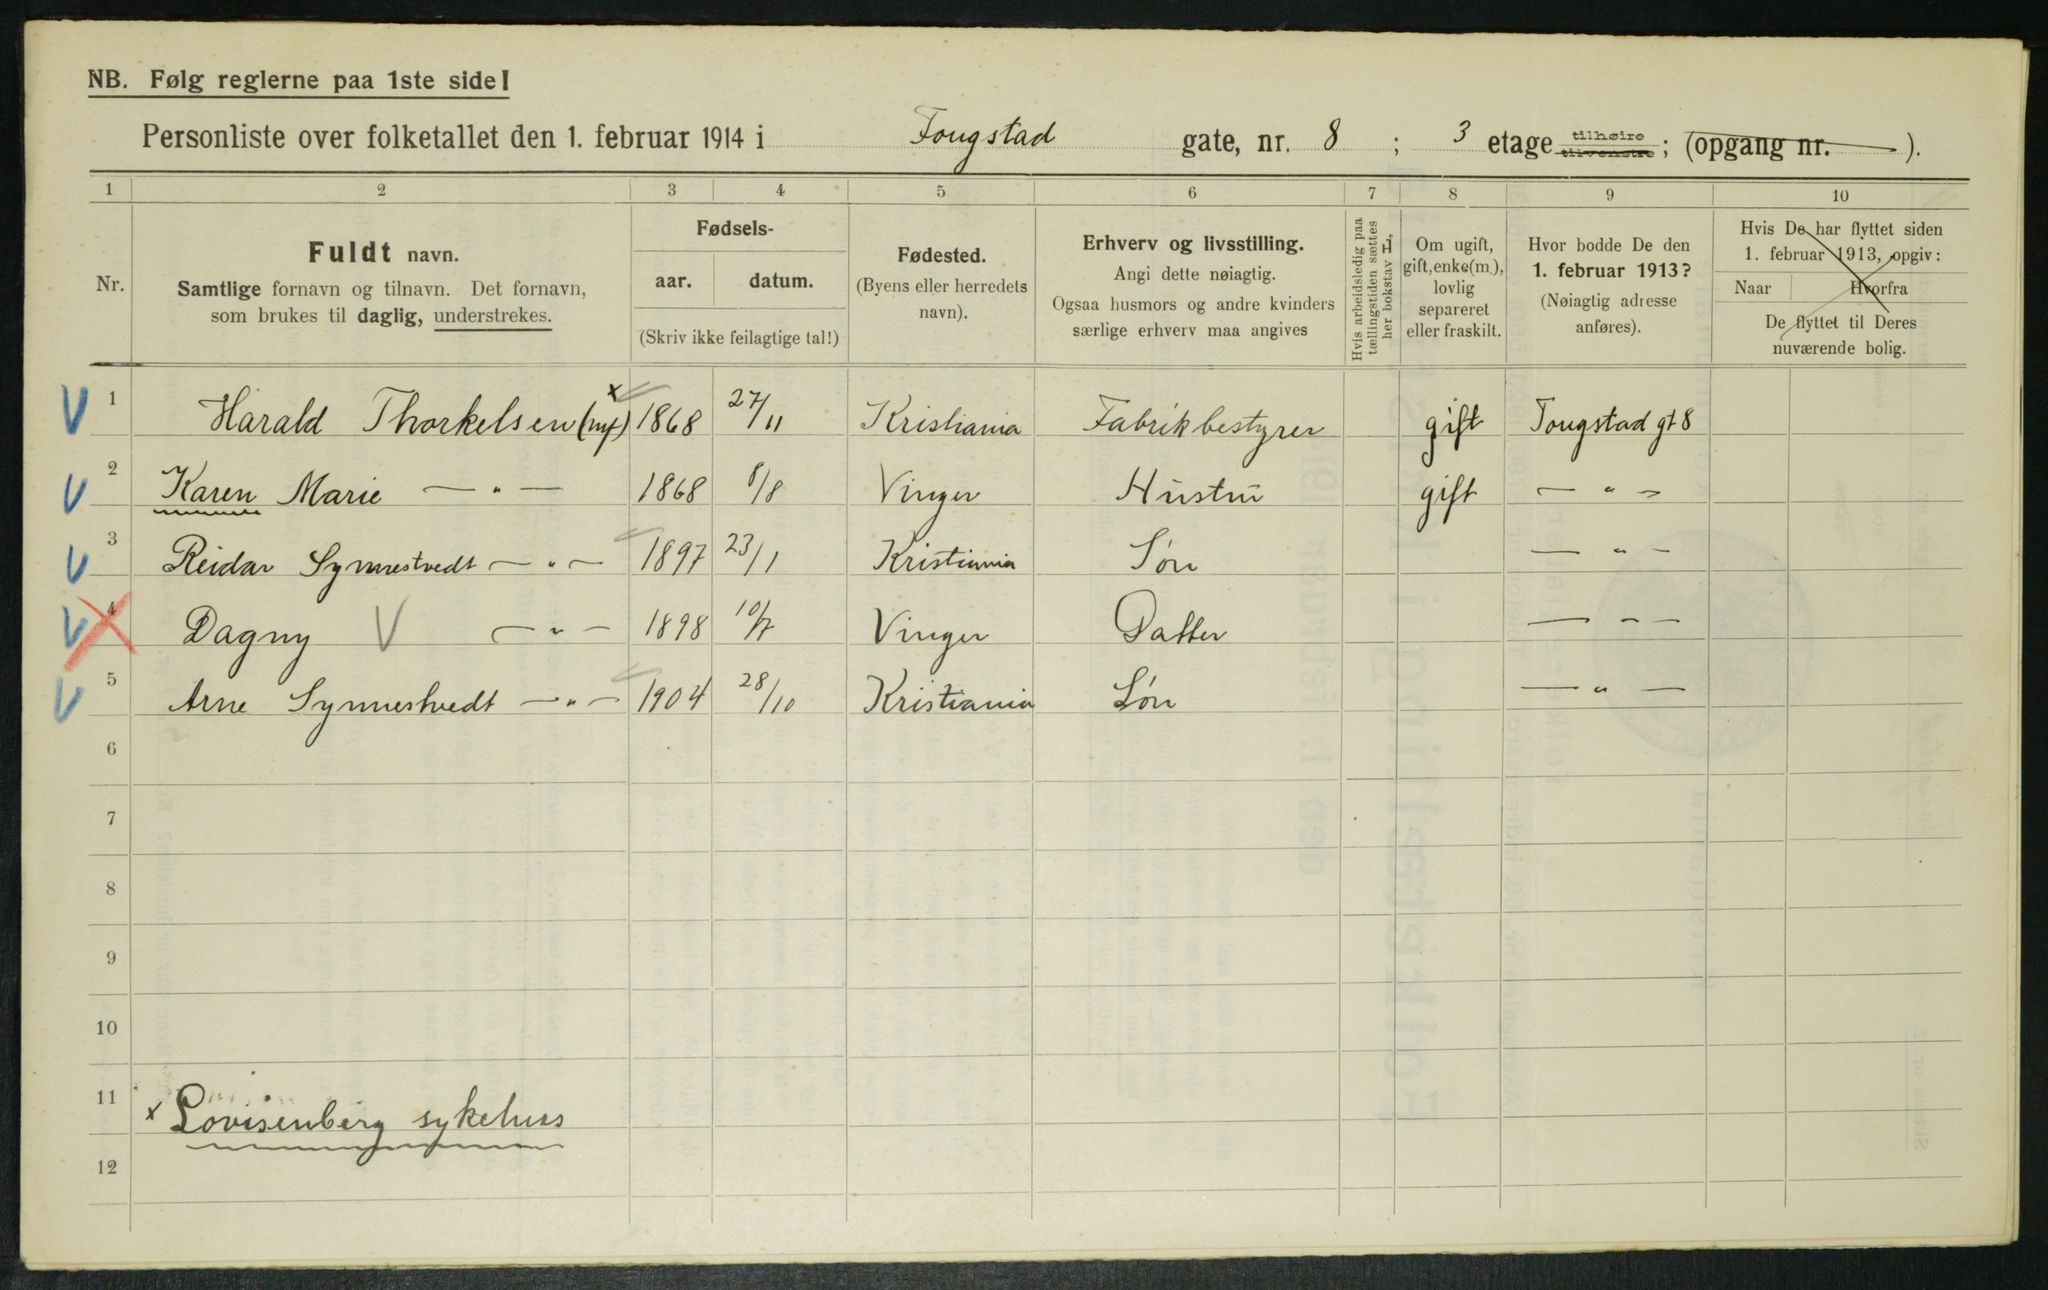 NB. Følg reglerne paa 1ste side!
Personliste over folketallet den 1. februar 1914 i Fougstad gate, nr. 8 ; 3 etage tilhøire tilvenstre ; (opgang nr. — ).
1 2 3 4 5 6 7 8 9 10
Nr.
Fuldt navn.
Samtlige fornavn og tilnavn. Det fornavn,
som brukes til daglig, understrekes.
Fødsels-
aar. datum.
(Skriv ikke feilagtige tal!)
Fødested.
(Byens eller herredets
navn).
Erhverv og livsstilling.
Angi dette nøiagtig.
Ogsaa husmors og andre kvinders
særlige erhverv maa angives
Hvis arbeidsledig paa
tællingstiden sættes
her bokstav L,
Om ugift,
gift, enke(m.),
lovlig
separeret
eller fraskilt.
Hvor bodde De den
1. februar 1913?
(Nøiagtig adresse
anføres).
Hvis De har flyttet siden
1. februar 1913, opgiv:
Naar Hvorfra
De flyttet til Deres
nuværende bolig.
V 1 Harald Thorkelsen x 1868 27/11 Kristiania Fabrikbestyrer gift Fougstad gt 8
V 2 Karen Marie — " — 1868 8/8 Vinger Hustru gift — " —
V 3 Reidar Synnestvedt — " — 1897 23/1 Kristiania Søn — " —
V 4 Dagny V — " — 1898 10/7 Vinger Datter — " —
V 5 Arne Synnestvedt — " — 1904 28/10 Kristiania Søn — " —
6
7
8
9
10
11
x Lovisenberg sykehus
12